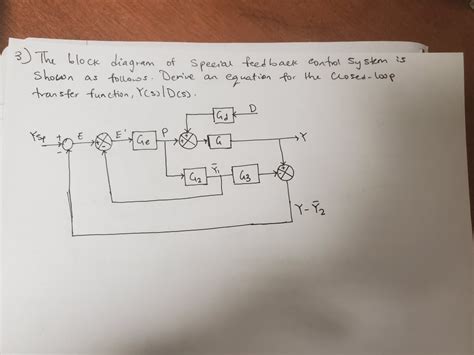 3) The block diagram of special feedback control system is
shown as follows. Derive an equation for the closed-loop
transfer function, Y(s)/D(s).
Gd D
Ysp + E E' Gc P G Y
-
G2 Ȳ1 G3
Y-Ȳ2